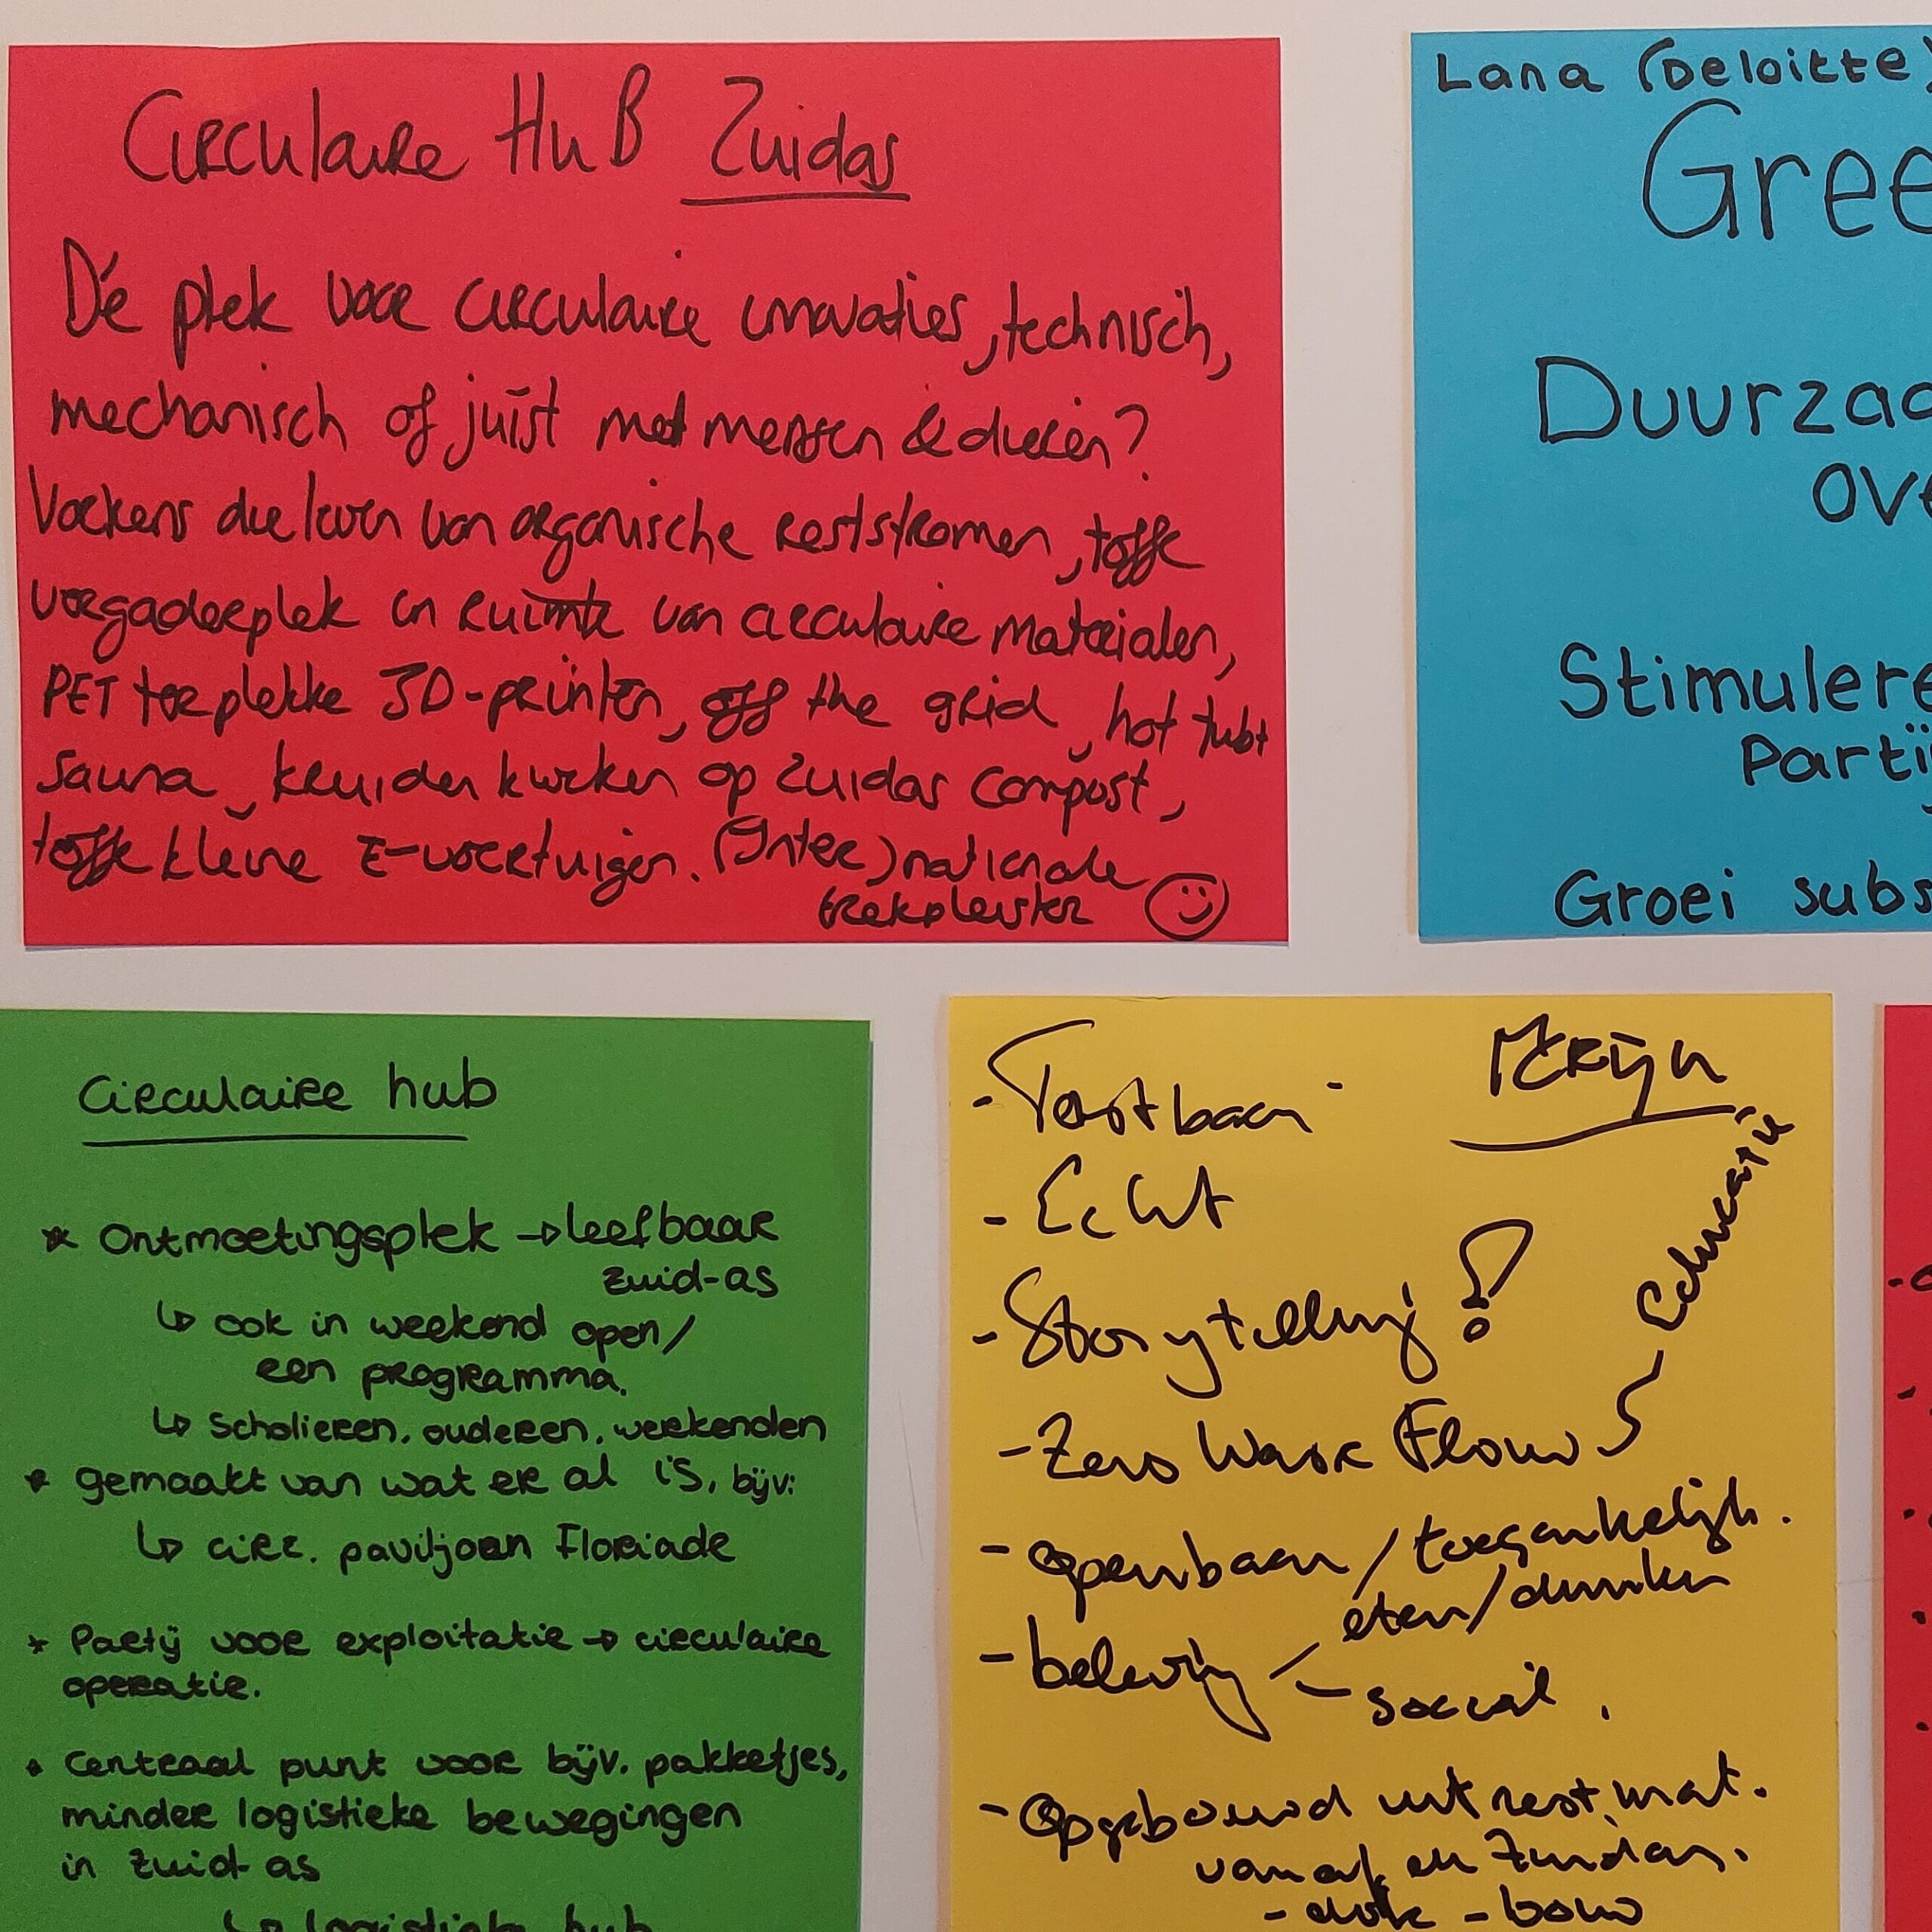 Circulaire Hub Zuidas
Dé plek voor circulaire innovaties, technisch,
mechanisch of juist met mensen & dieren?
Varkens die leven van organische reststromen, toffe
vergaderplek en ruimte van circulaire materialen,
PET ter plekke 3D-printen, off the grid, hot tub+
sauna, kruiden kweken op Zuidas compost,
toffe kleine E-voertuigen. (Inter)nationale
trekpleister
Lana (Deloitte)
Gree
Duurzaa
ove
Stimulere
Partij
Groei subs
Circulaire hub
* Ontmoetingsplek → leefbaar
zuid-as
↳ ook in weekend open/
een programma.
↳ Scholieren, ouderen, weekenden
* gemaakt van wat er al is, bijv:
↳ circ. paviljoen Floriade
* Partij voor exploitatie → circulaire
operatie.
* Centraal punt voor bijv. pakketjes,
minder logistieke bewegingen
in zuid-as
↳ logistieke hub
Merijn
- Tastbaar
- Echt
- Storytelling!
- Zero Waste Flow
Educatie
- openbaar / toegankelijk.
eten/drinken
- beleving
- social.
- Opgebouwd uit rest.mat.
vanaf en Zuidas.
- bouw